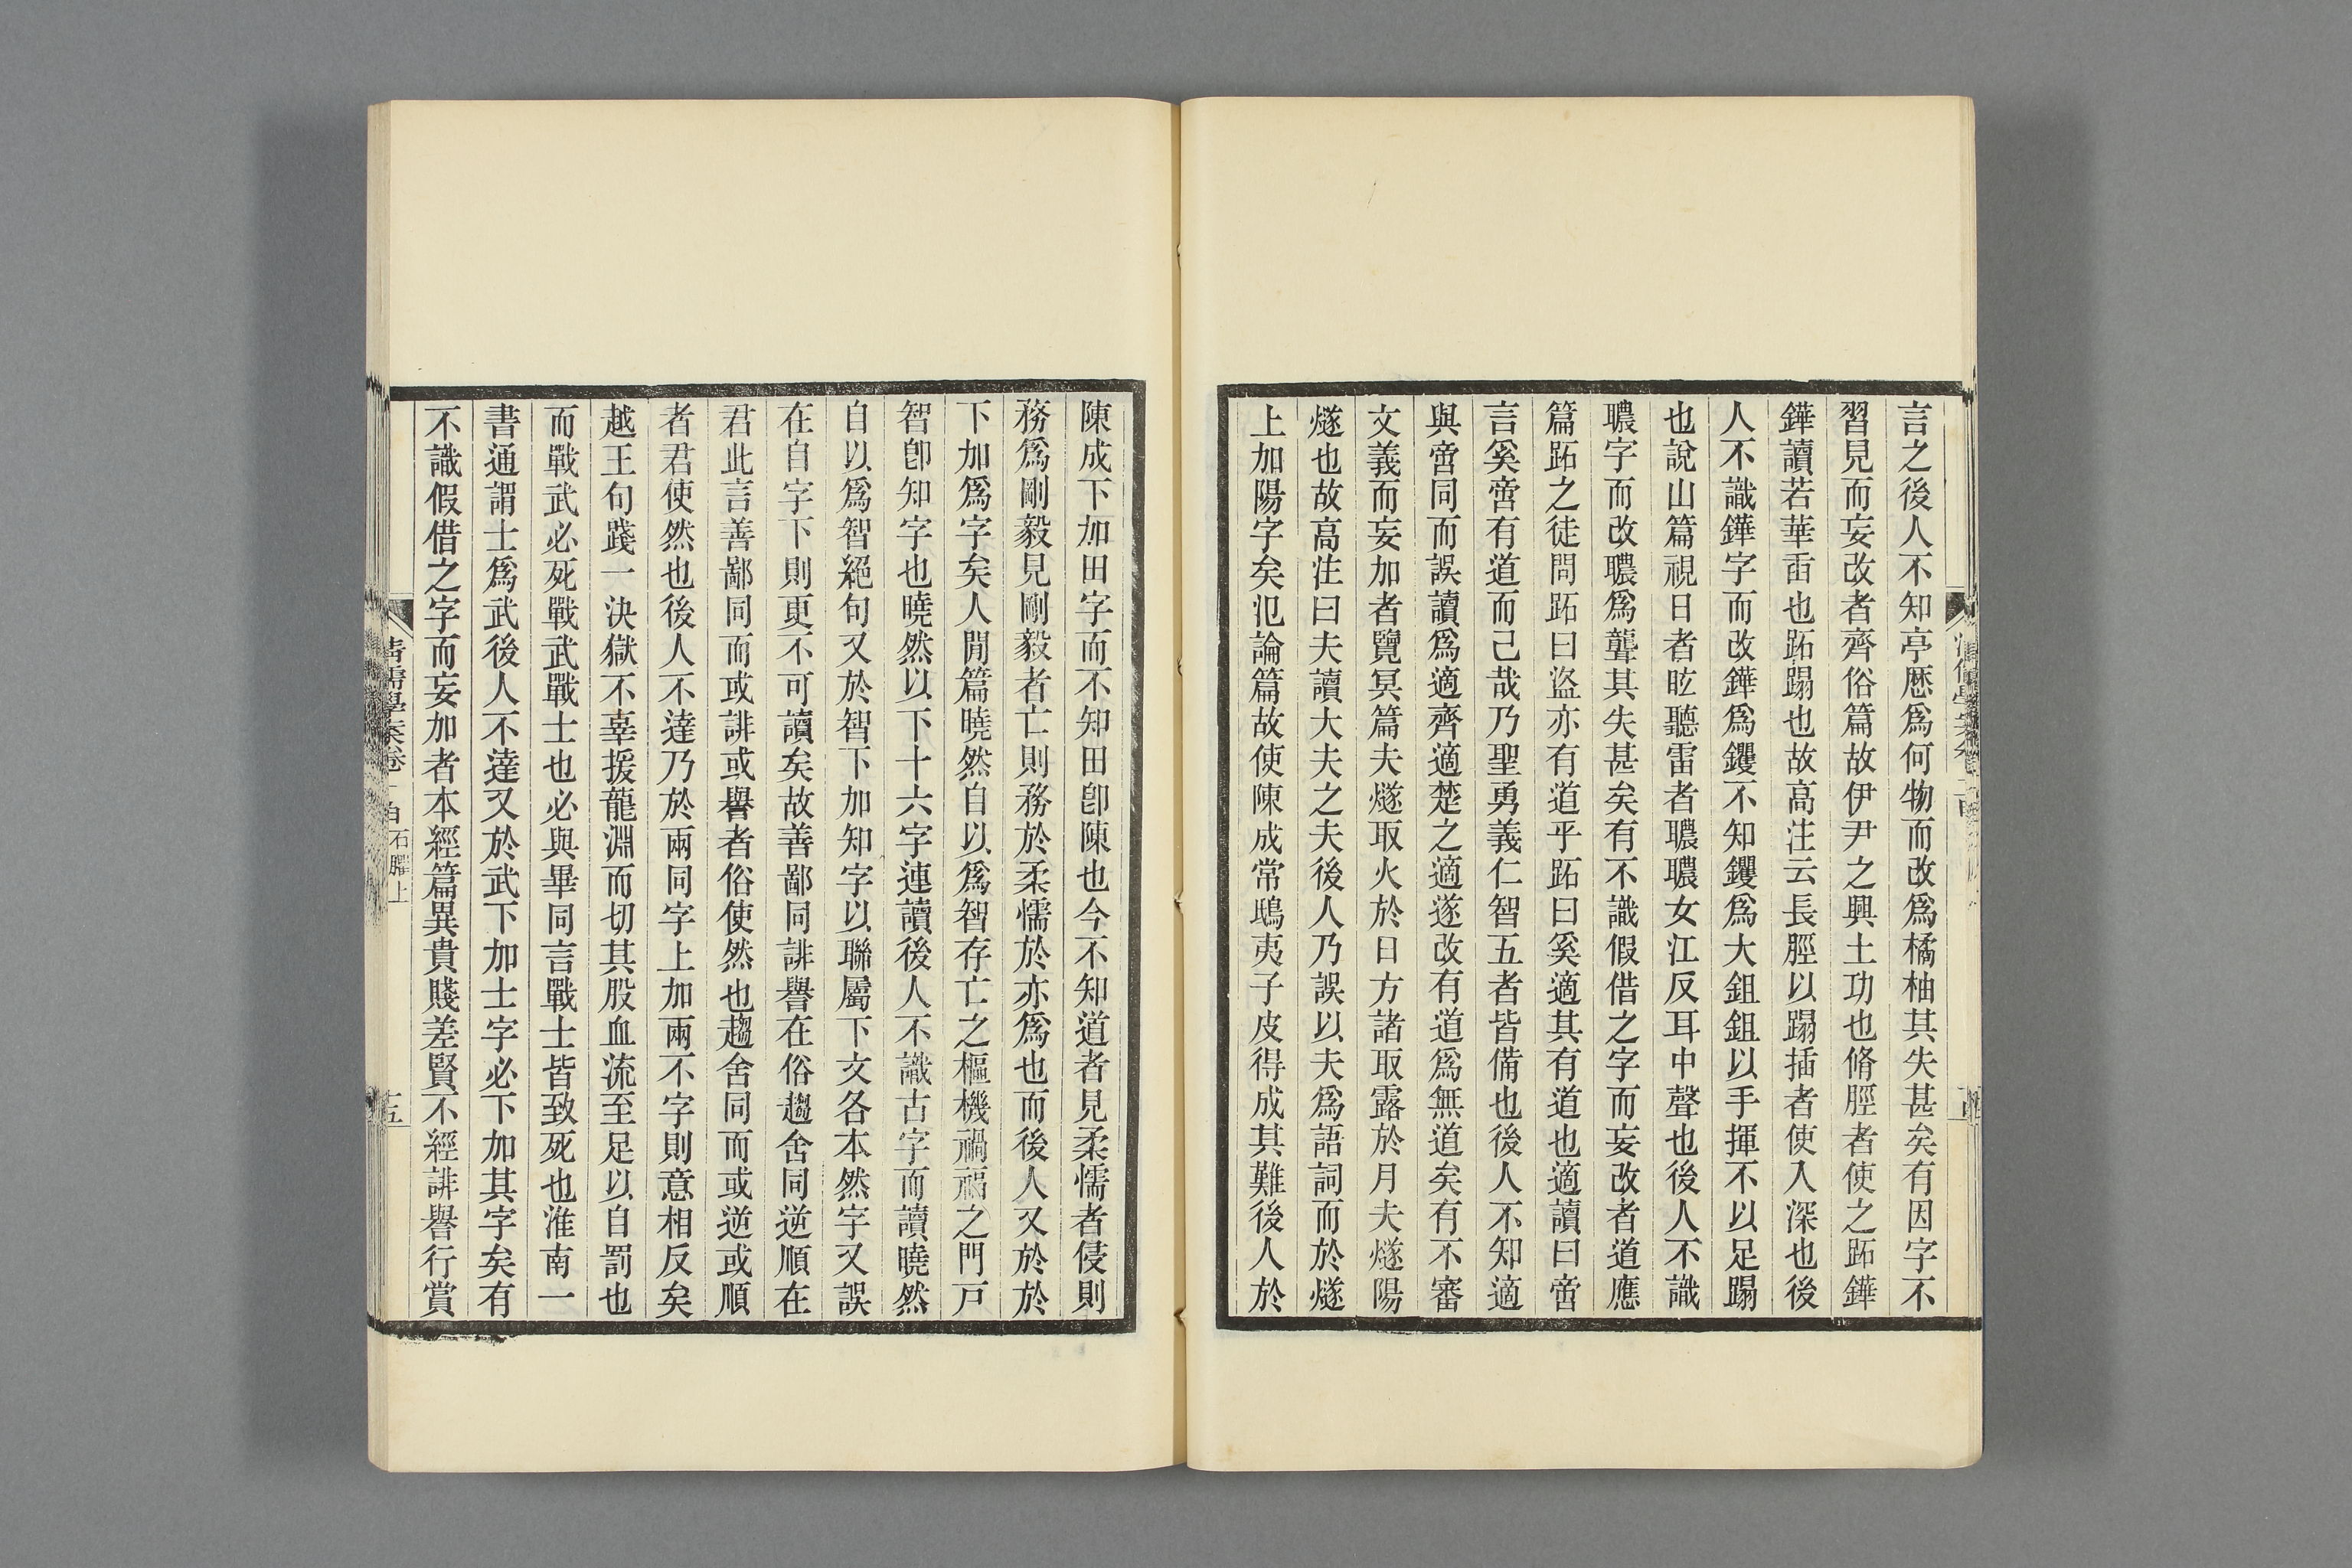 言之後人不知亭歷爲何物而改爲橘柚其失甚矣有因字不
習見而妄改者齊俗篇故伊尹之興土功也脩脛者使之跖鏵
鏵讀若華臿也跖蹋也故高注云長脛以蹋插者使入深也後
人不識鏵字而改鏵爲钁不知钁爲大鉏鉏以手揮不以足蹋
也說山篇視日者眩聽雷者聵聵女江反耳中聲也後人不識
聵字而改聵爲聾其失甚矣有不識假借之字而妄改者道應
篇跖之徒問跖曰盜亦有道乎跖曰奚適其有道也適讀曰啻
言奚啻有道而已哉乃聖勇義仁智五者皆備也後人不知適
與啻同而誤讀爲適齊適楚之適遂改有道爲無道矣有不審
文義而妄加者覽冥篇夫燧取火於日方諸取露於月夫燧陽
燧也故高注曰夫讀大夫之夫後人乃誤以夫爲語詞而於燧
上加陽字矣氾論篇故使陳成常鴟夷子皮得成其難後人於
陳成下加田字而不知田卽陳也今不知道者見柔懦者侵則
務爲剛毅見剛毅者亡則務於柔懦於亦爲也而後人又於於
下加爲字矣人閒篇曉然自以爲智存亡之樞機禍福之門戸
智卽知字也曉然以下十六字連讀後人不識古字而讀曉然
自以爲智絕句又於智下加知字以聯屬下文各本然字又誤
在自字下則更不可讀矣故善鄙同誹譽在俗趨舍同逆順在
君此言善鄙同而或誹或譽者俗使然也趨舍同而或逆或順
者君使然也後人不達乃於兩同字上加兩不字則意相反矣
越王句踐一決獄不辜援龍淵而切其股血流至足以自罰也
而戰武必死戰武戰士也必與畢同言戰士皆致死也淮南一
書通謂士爲武後人不達又於武下加士字必下加其字矣有
不識假借之字而妄加者本經篇異貴賤差賢不經誹譽行賞
清儒學案卷一百
石臞上
十五